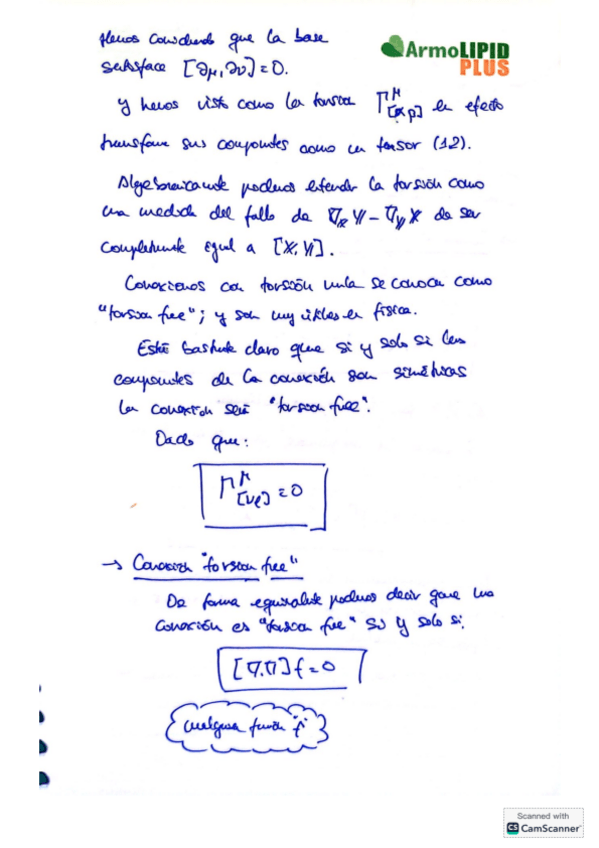 Hemos considerado que la base
satisface [∂μ, ∂ν] = 0.
ArmoLIPID
PLUS
y hemos visto como la torsión Γ^μ_[αβ] en efecto
transforma sus componentes como un tensor (1,2).
Algebraicamente podemos entender la torsión como
una medida del fallo de ∇_X Y - ∇_Y X de ser
completamente igual a [X, Y].
Conexiones con torsión nula se conocen como
"torsion free"; y son muy útiles en física.
Está bastante claro que si y solo si las
componentes de la conexión son simétricas
la conexión será "torsion free".
Dado que:
Γ^μ_[νρ] = 0
→ Conexión "torsion free"
De forma equivalente podemos decir que una
conexión es "torsion free" si y solo si,
[∇,∇] f = 0
cualquier función f
Scanned with
CS CamScanner